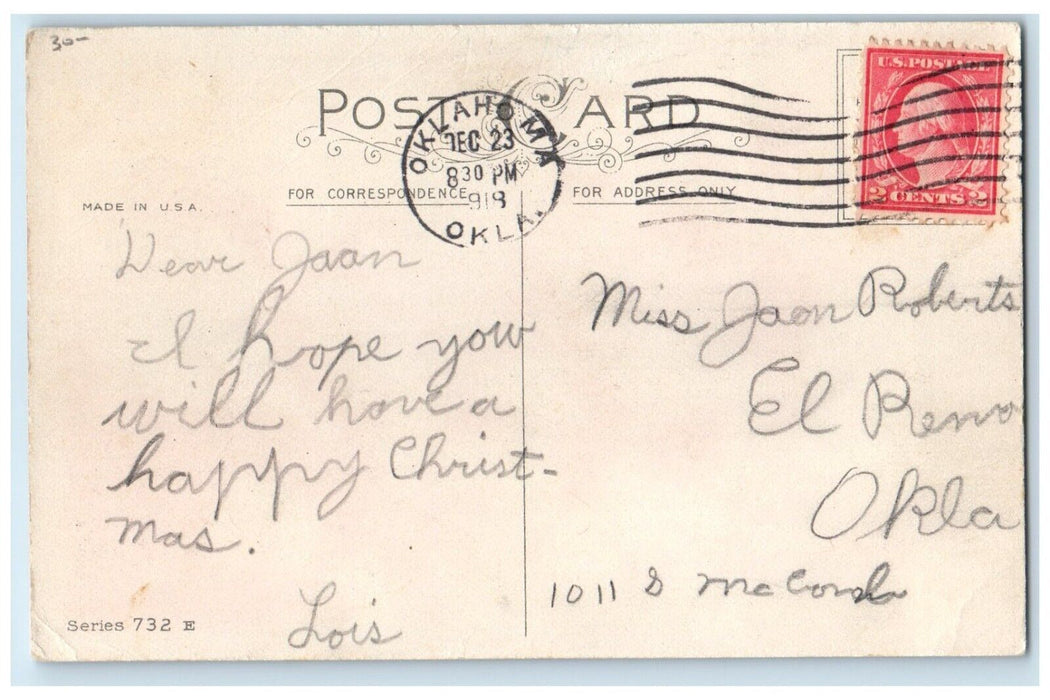 30-
POST CARD
OKLAHOMA
DEC 23
8 30 PM
1918
OKLA.
U.S. POSTAGE
2 CENTS 2
FOR CORRESPONDENCE
FOR ADDRESS ONLY
MADE IN U.S.A.
Dear Jaan
I hope you
will have a
happy Christ-
mas.
Lois
Series 732 E
Miss Jaan Roberts
El Reno
Okla
1011 S